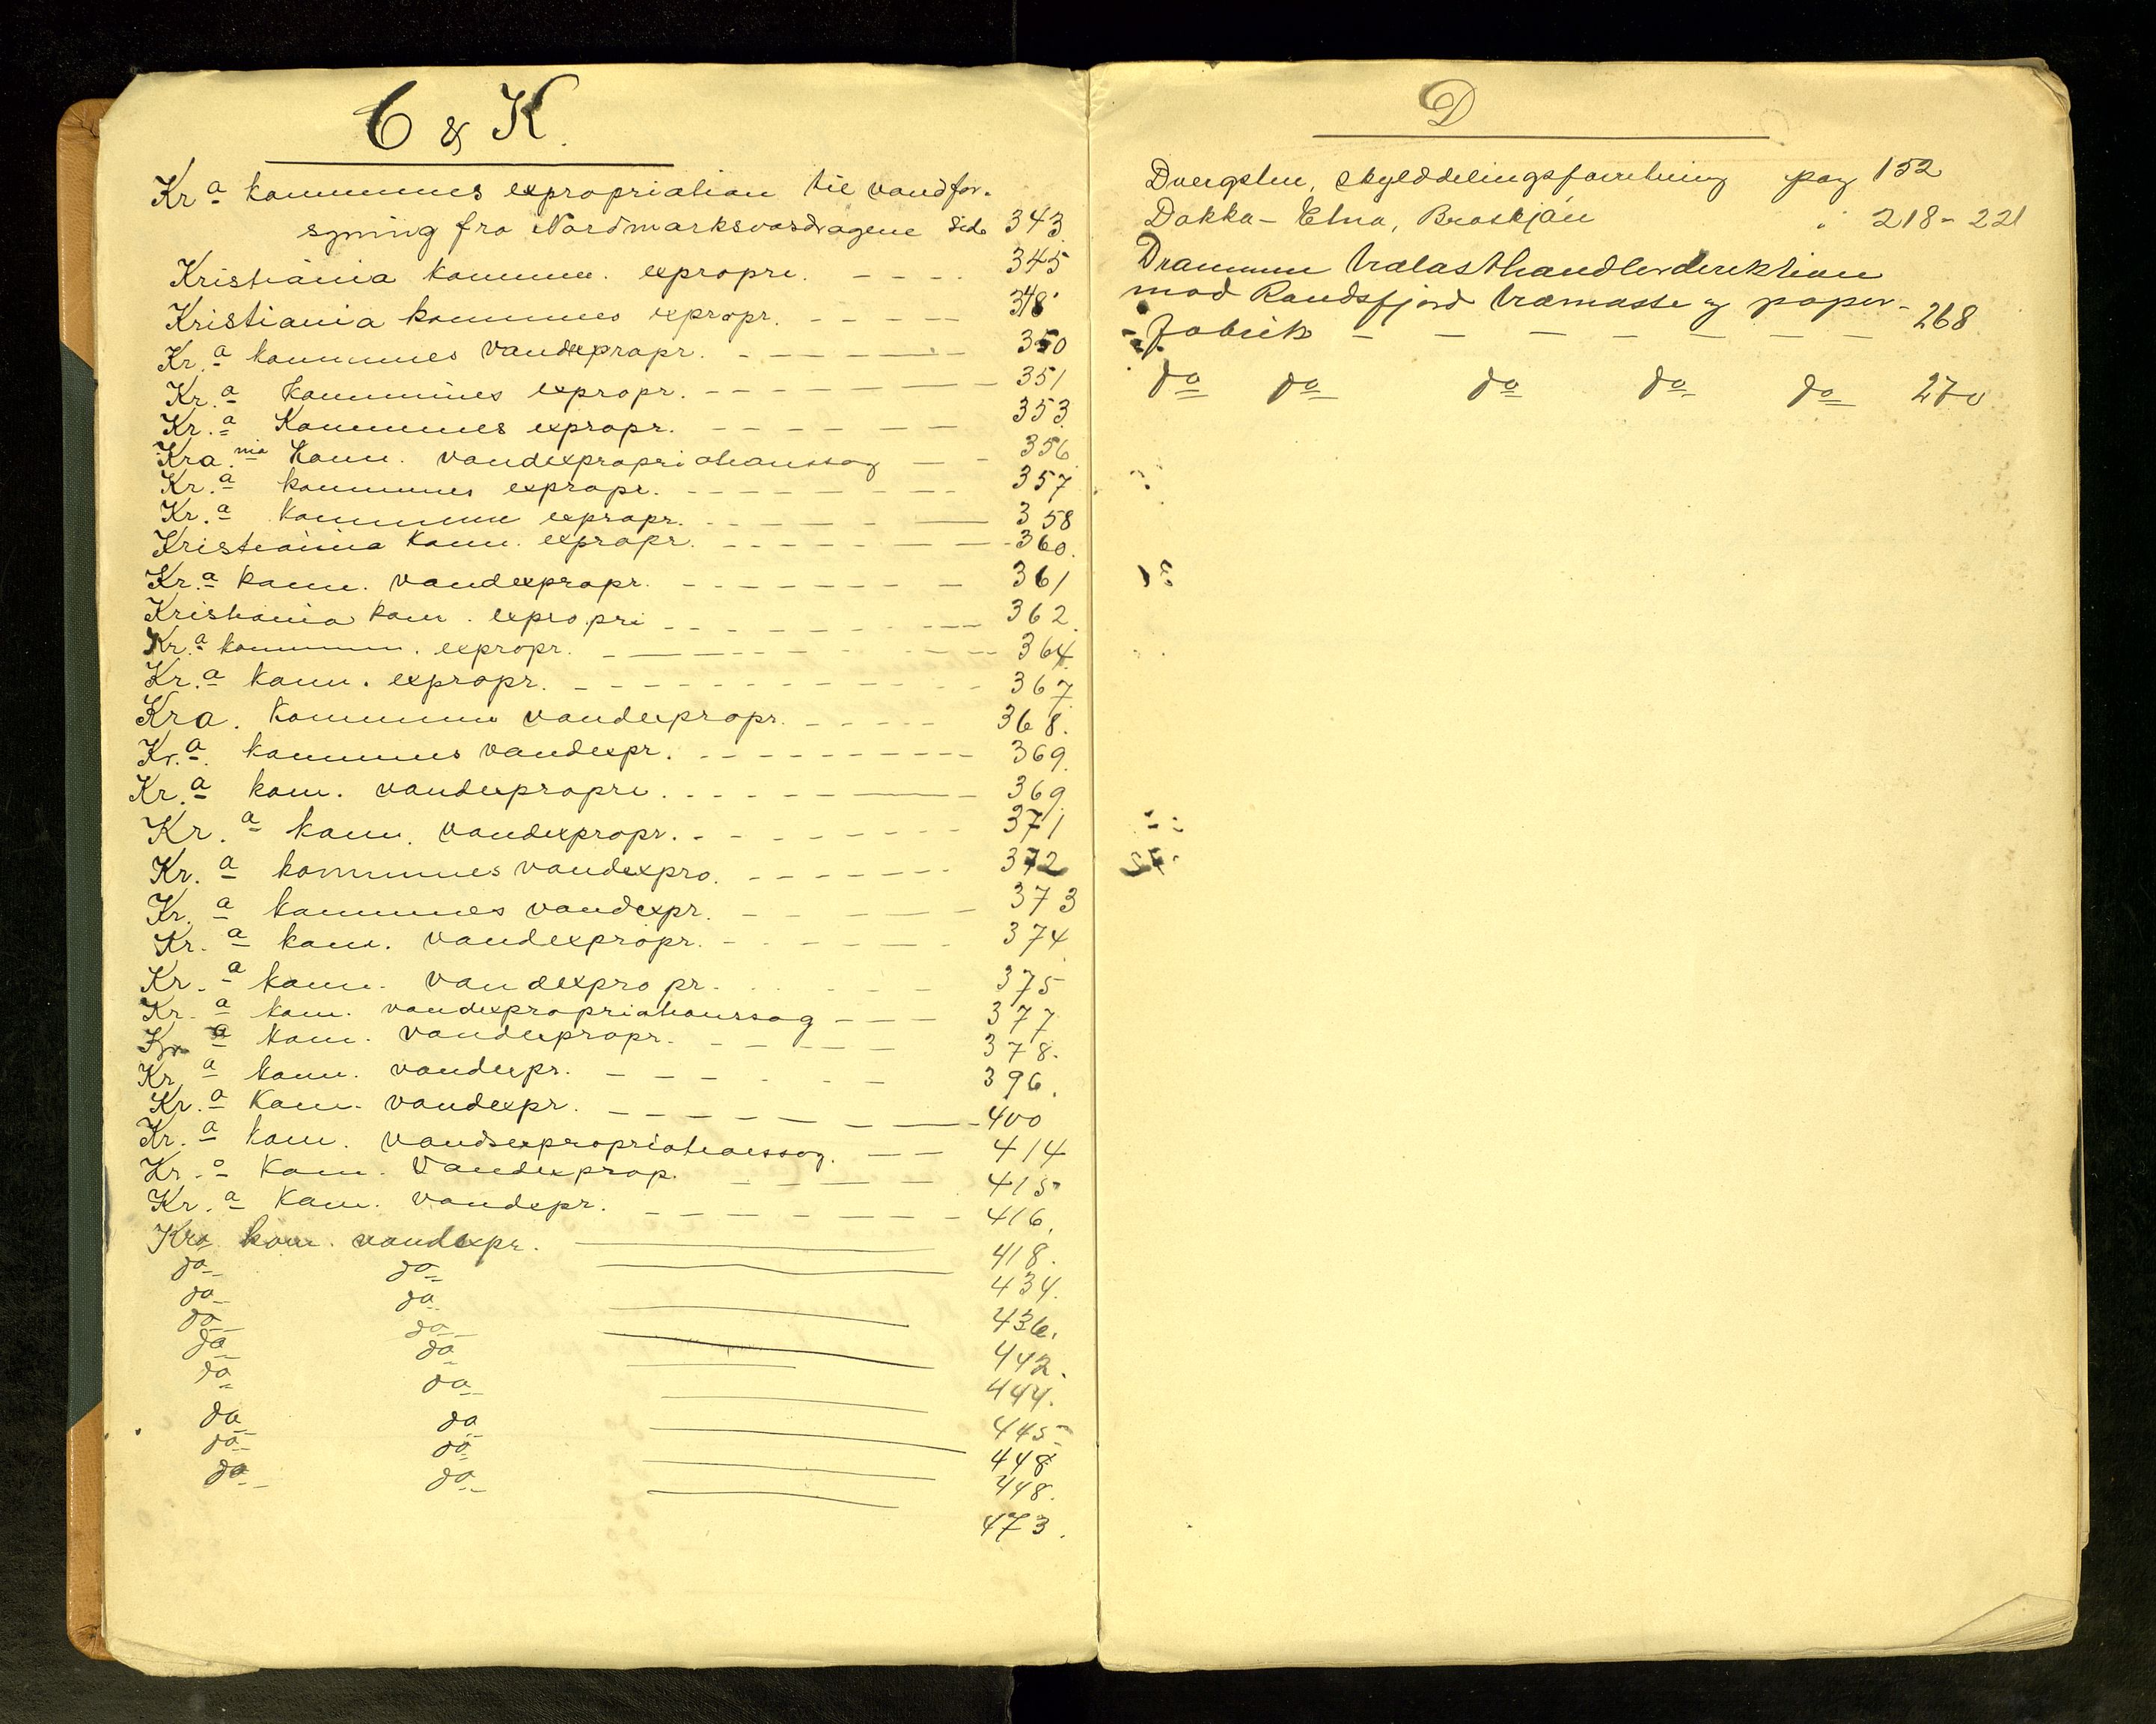 C & K.
Kr.a kommunes expropriation til vandfor-
syning fra Nordmarksvasdragene side 343
Kristiania kommu. expropri. - - - - 345
Kristiania kommunes expropr. - - - - - 348
Kr.a kommunes vandexpropr. - - - - - - 350
Kr.a kommunes expropr. - - - - - - - 351
Kr.a Kommunes expropr. - - - - - - 353.
Kra.nia Komm. vandexpropriationssag - - 356
Kr.a kommunes expropr. - - - - - - - - 357
Kr.a kommune expropr. - - - - - - 358
Kristiania Komm. expropr. - - - - - - - 360.
Kr.a komm. vandexpropr. - - - - - - - 361
Kristiania kom. expropri - - - - - - - 362.
Kr.a kommun. expropr. - - - - - - - 364.
Kr.a komm. expropr. - - - - - - - - - - 367
Kra. Kommune vandexpropr. - - - - - 368.
Kr.a. kommunes vandexpr. - - - - - - - - - 369.
Kr.a kom. vandexpropri. - - - - - - 369.
Kr.a komm. vandexpropr. - - - - - - - - 371
Kr.a kommunes vandexpro. - - - - - - - 372
Kr.a kommunes vandexpr. - - - - - - 373
Kr.a kom. vandexpropr. - - - - - - 374
Kr.a komm. vandexpropr. - - - - - 375
Kr.a kom. vandexpropriationssag - - - 377
Kr.a kom. vandexpropr. - - - - - 378.
Kr.a komm. vandexpr. - - - - - - 396.
Kr.a Kom. vandexpr. - - - - - - - 400
Kr.a kom. vandsexpropriationssag. - - 414
Kr.a Kom. Vandexprop. - - - - - 415
Kr.a Kom. vandexpr. - - - - - - - - 416.
Kra kom. vandexpr. 418.
do do 434.
do do 436.
do do 442.
do do 444.
do do 445
do do 448
do do 448.
do do 473.
D
Dvergsten, skylddelingsforretning pag 152
Dokka - Etna, Broskjøn " 218 - 221
Drammen Trælasthandlerdirektion
mod Randsfjord Træmasse og papir-
fabrik - - - - - - - 268
do do do do do 270